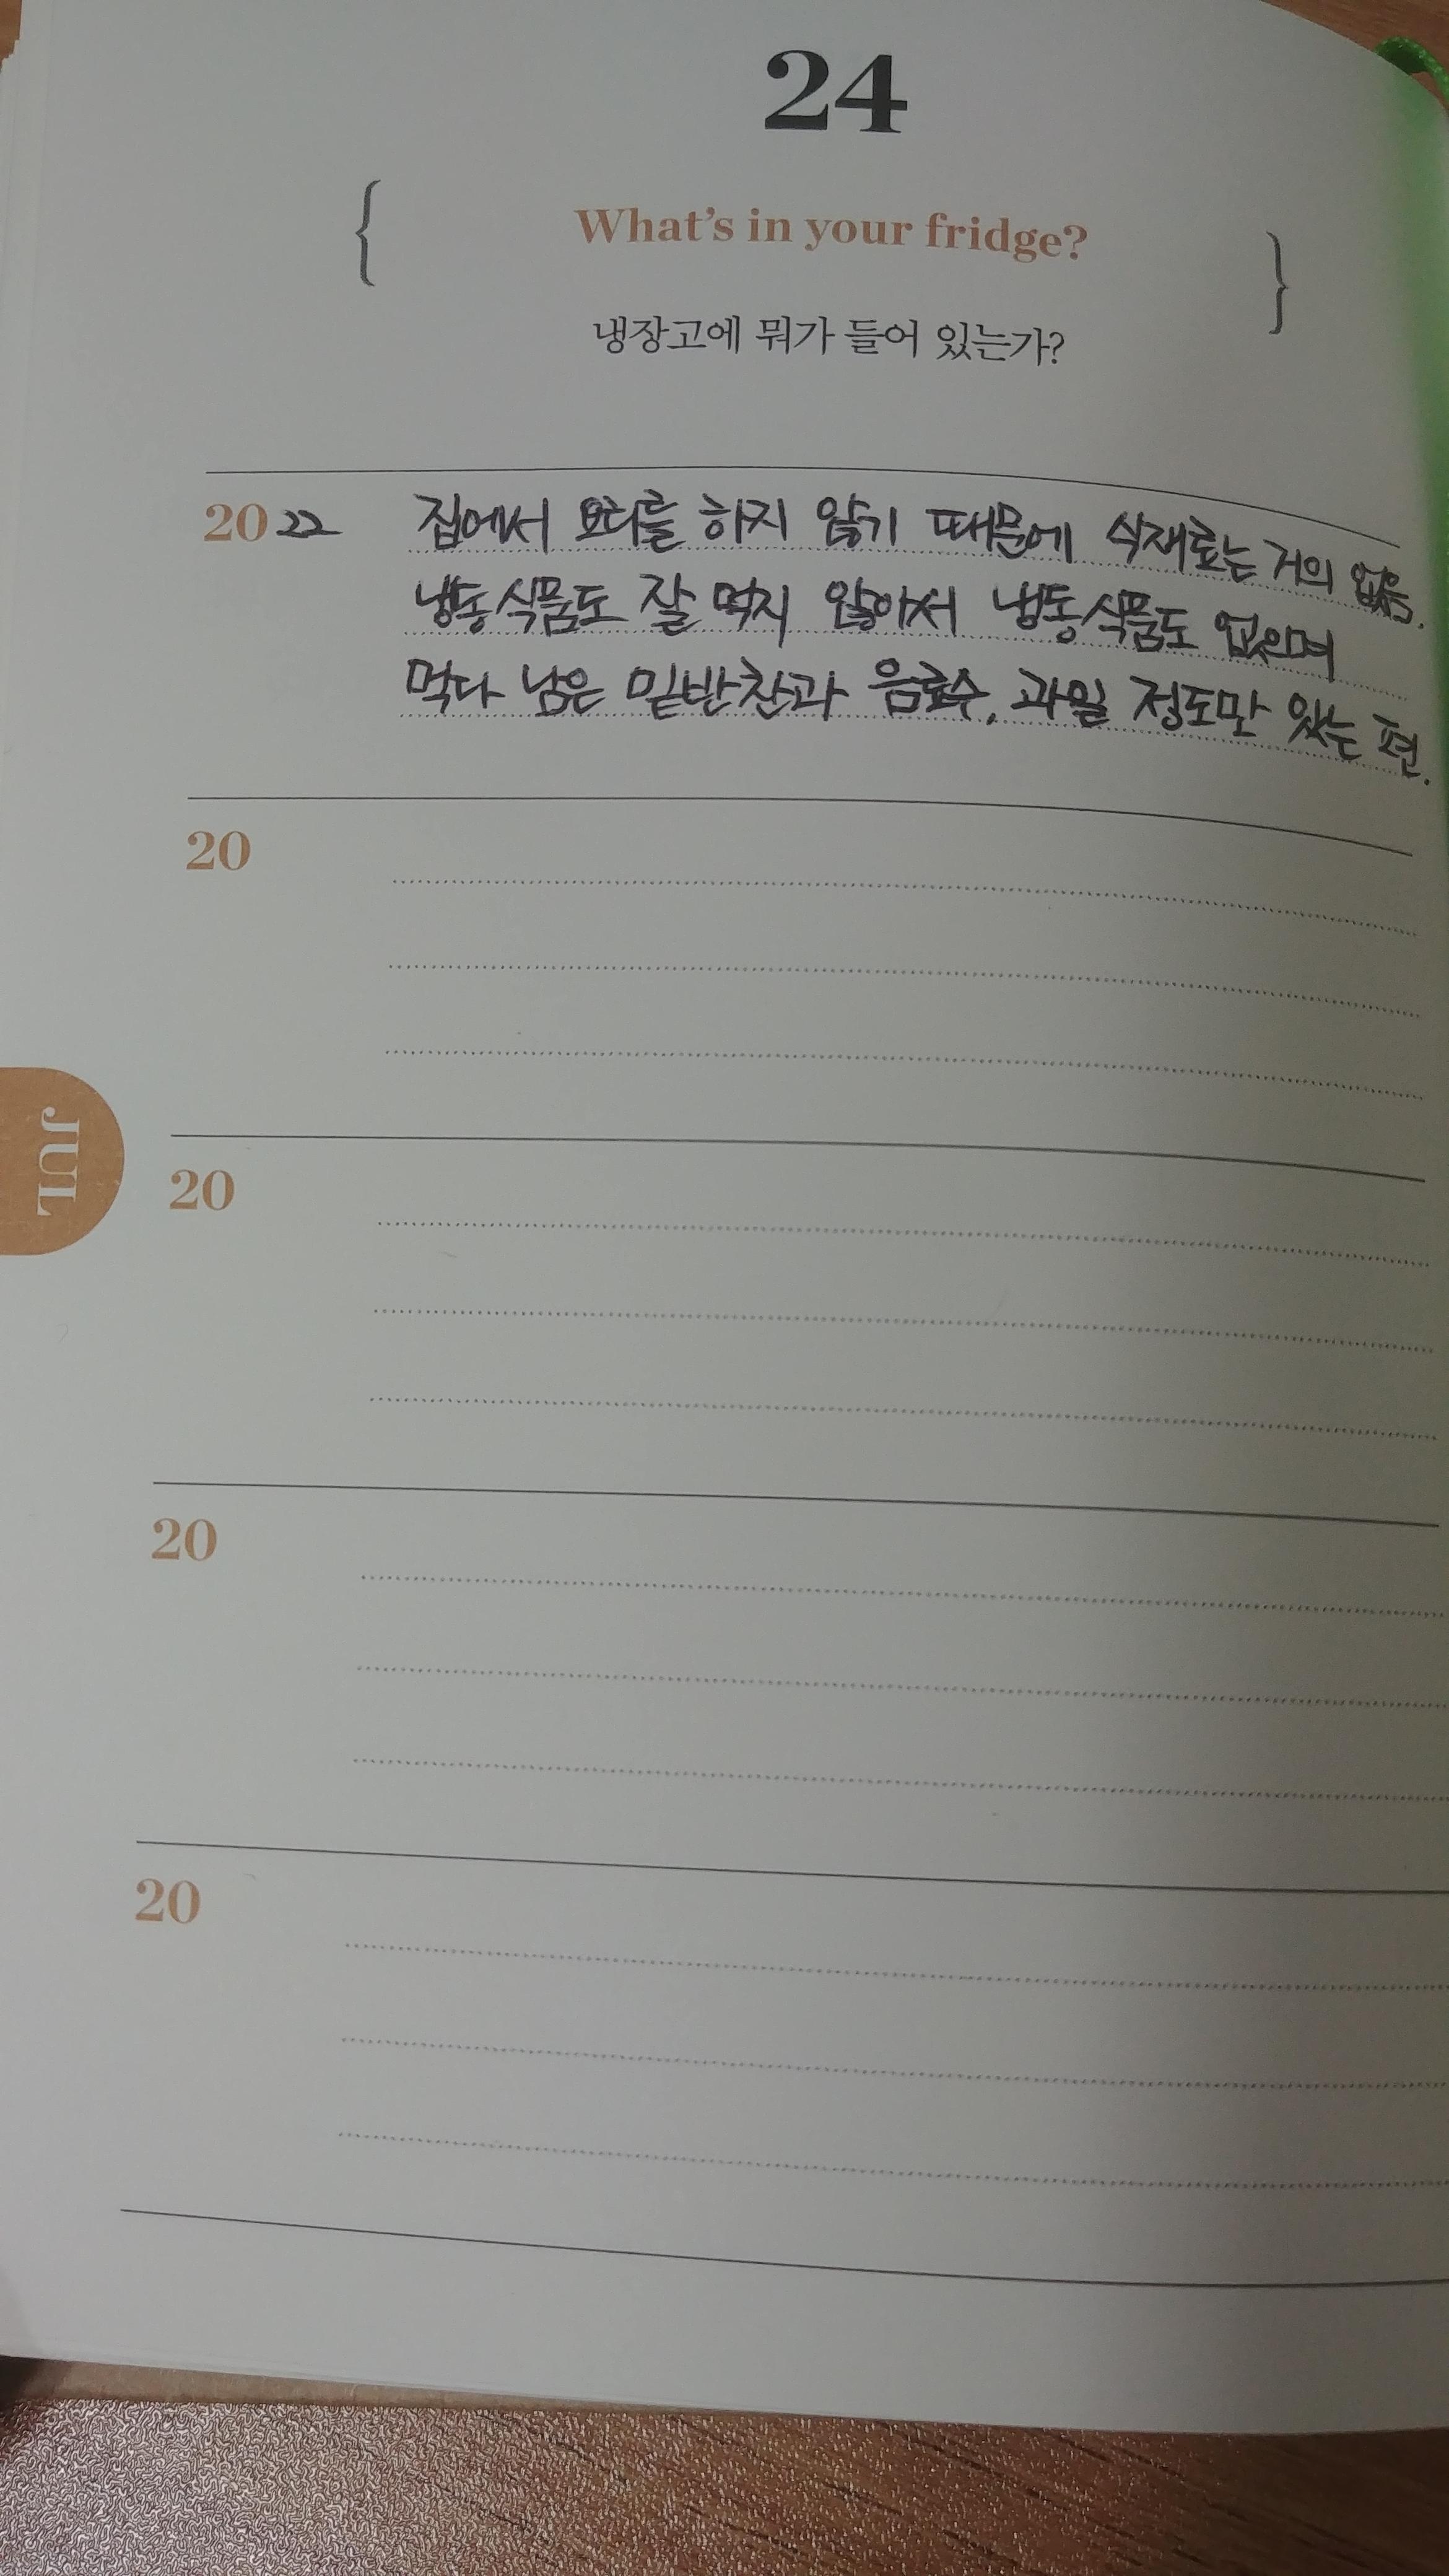 24
What's in your fridge?
냉장고에 뭐가 들어 있는가?
2022 집에서 요리를 하지 않기 때문에 식재료는 거의 없음.
냉동식품도 잘 먹지 않아서 냉동식품도 없으며
먹다 남은 밑반찬과 음료수, 과일 정도만 있는 편.
20
JUL
20
20
20